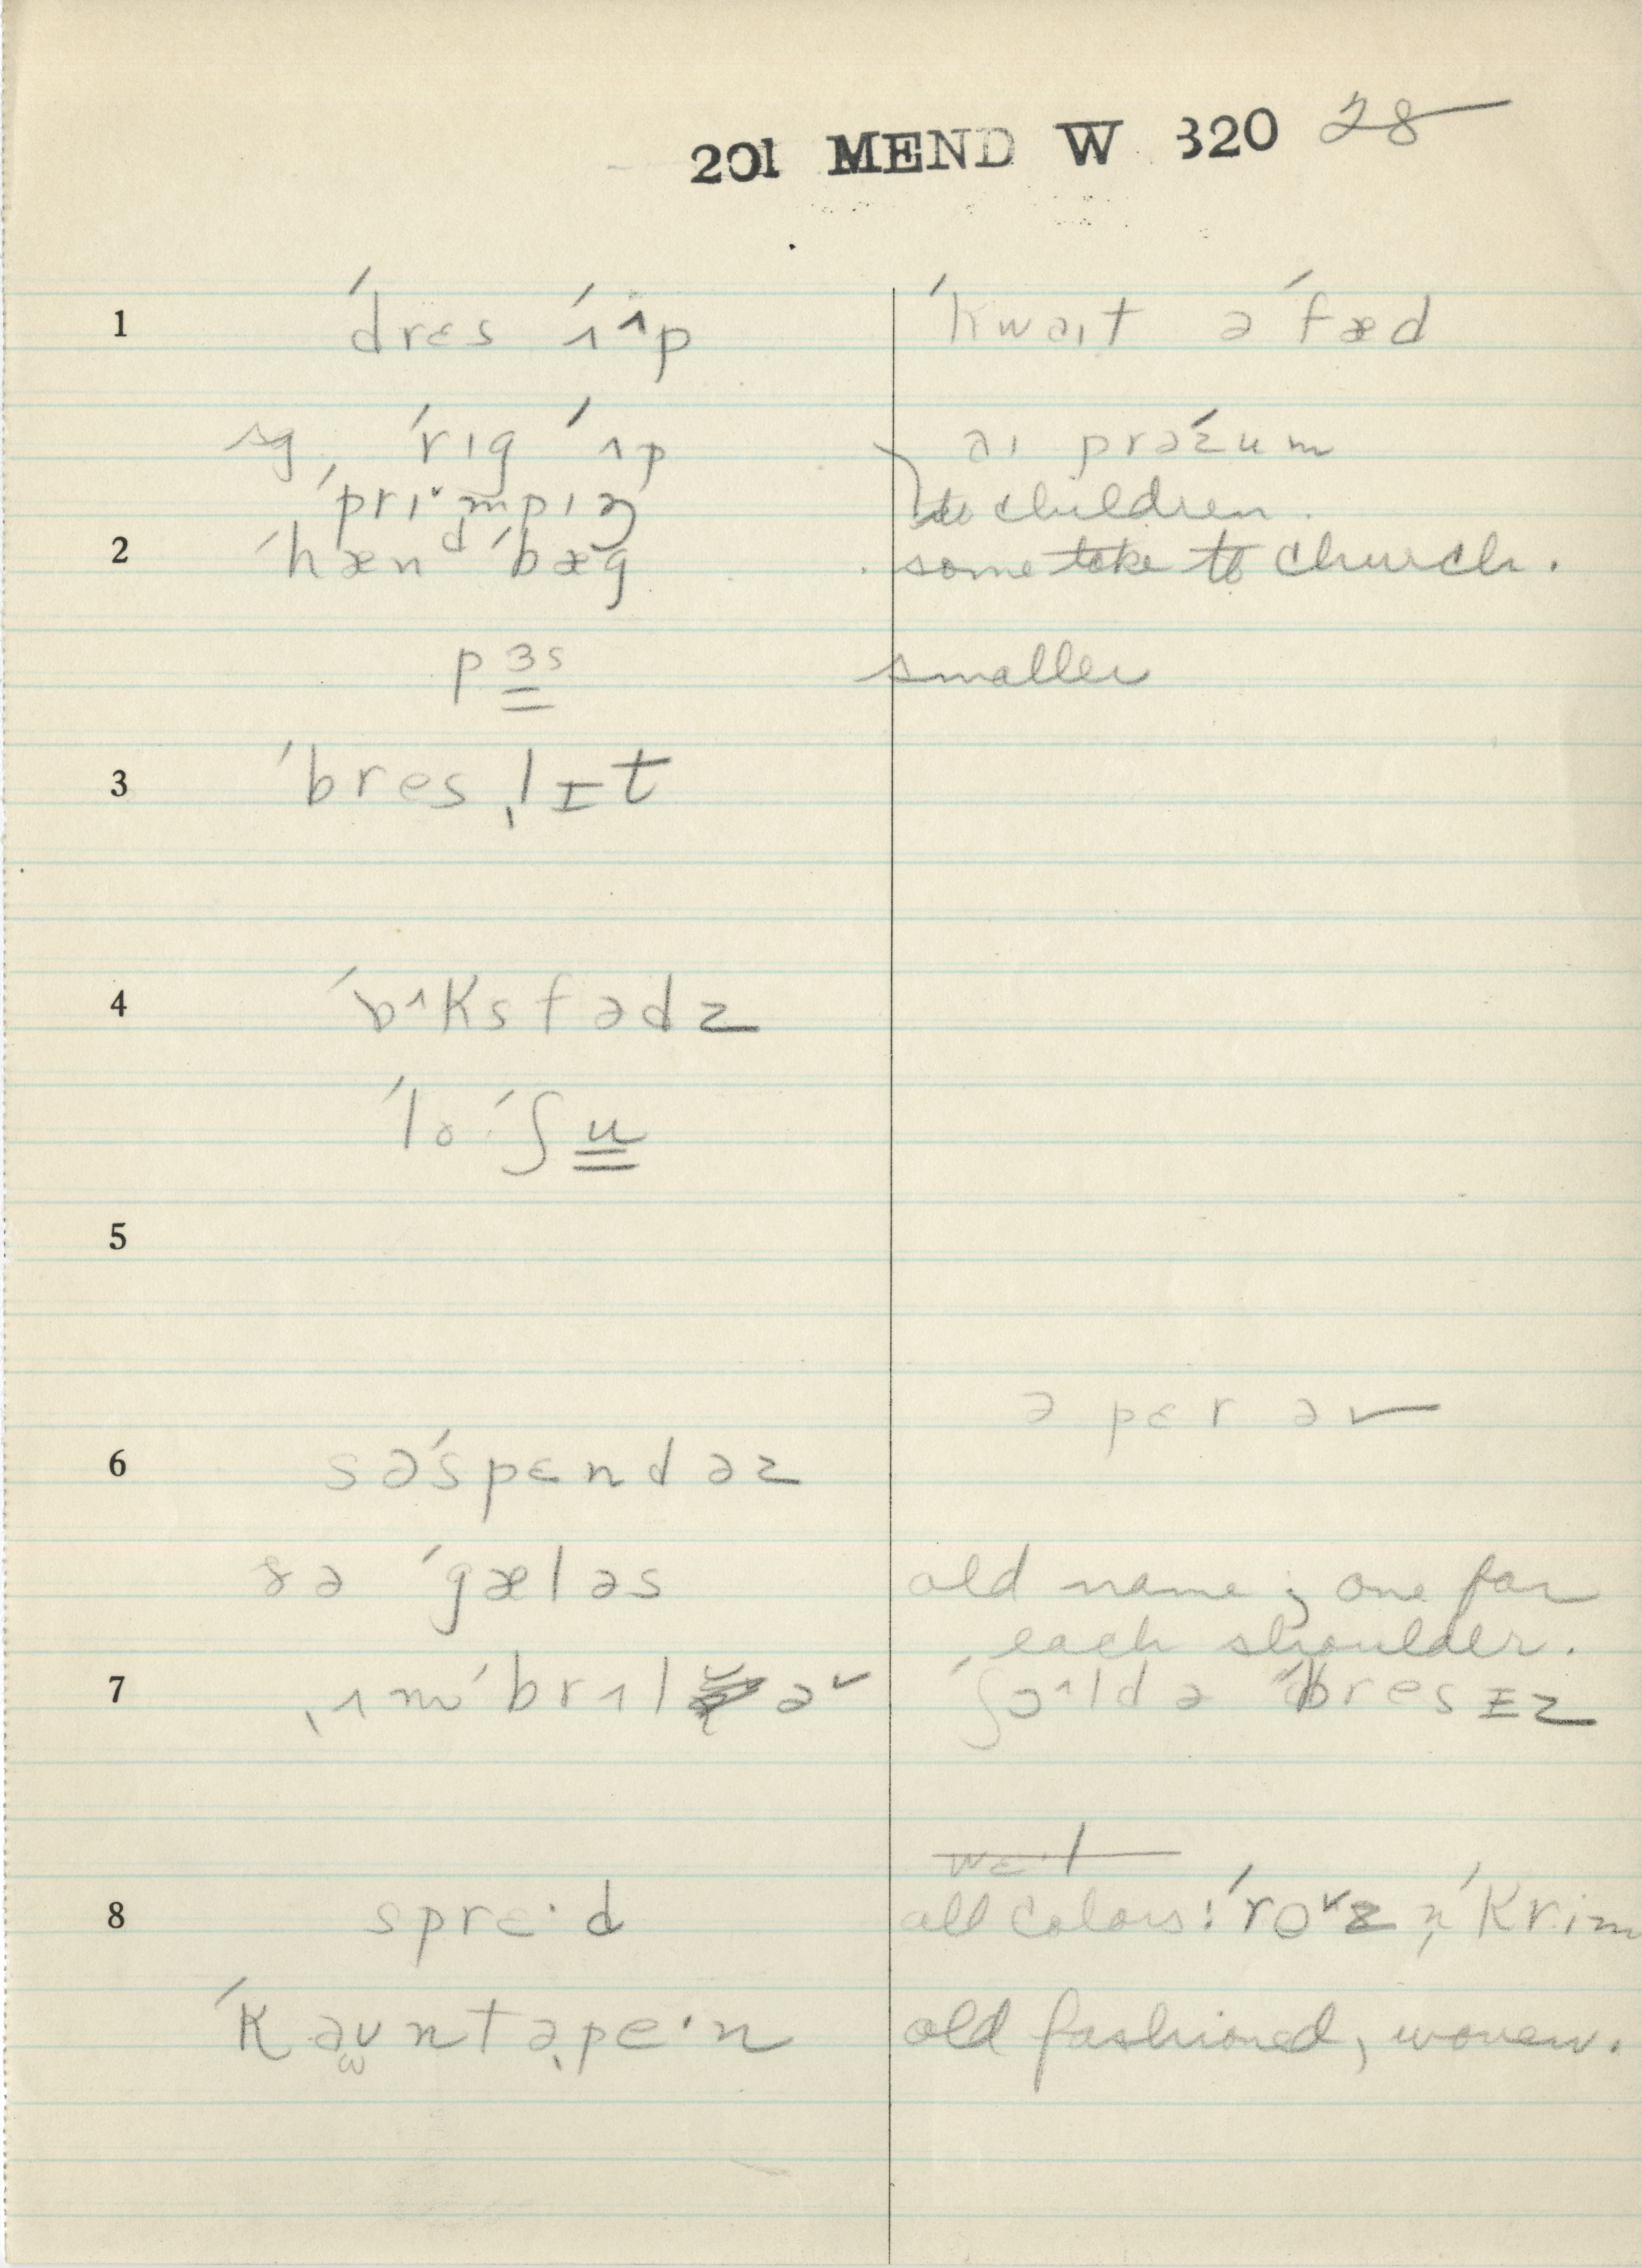 201 MEND W 320 28
1 ˈdrɛs ˈʌʌp ˈkwaɪt ə ˈfæd
sg, ˈrɪg ˈʌp aɪ prəˈzum
ˈprɪˇmpɪŋ to children.
2 ˈhænᵈ ˈbæg some take to church.
pɜs smaller
3 ˈbresˌlɪt
4 ˈbʌksfədz
ˈlo ˈʃu
5
ə pɛr əv
6 səˈspɛndəz
sə ˈgæləs old name; one for
each shoulder.
7 ˌʌmˈbrʌlə ˈʃoldə ˈbresɪz
8 sprɛ·d all colors: ˈroˇz n̩ ˈkrim
ˈkaʊntəˌpe·n old fashioned, woven.